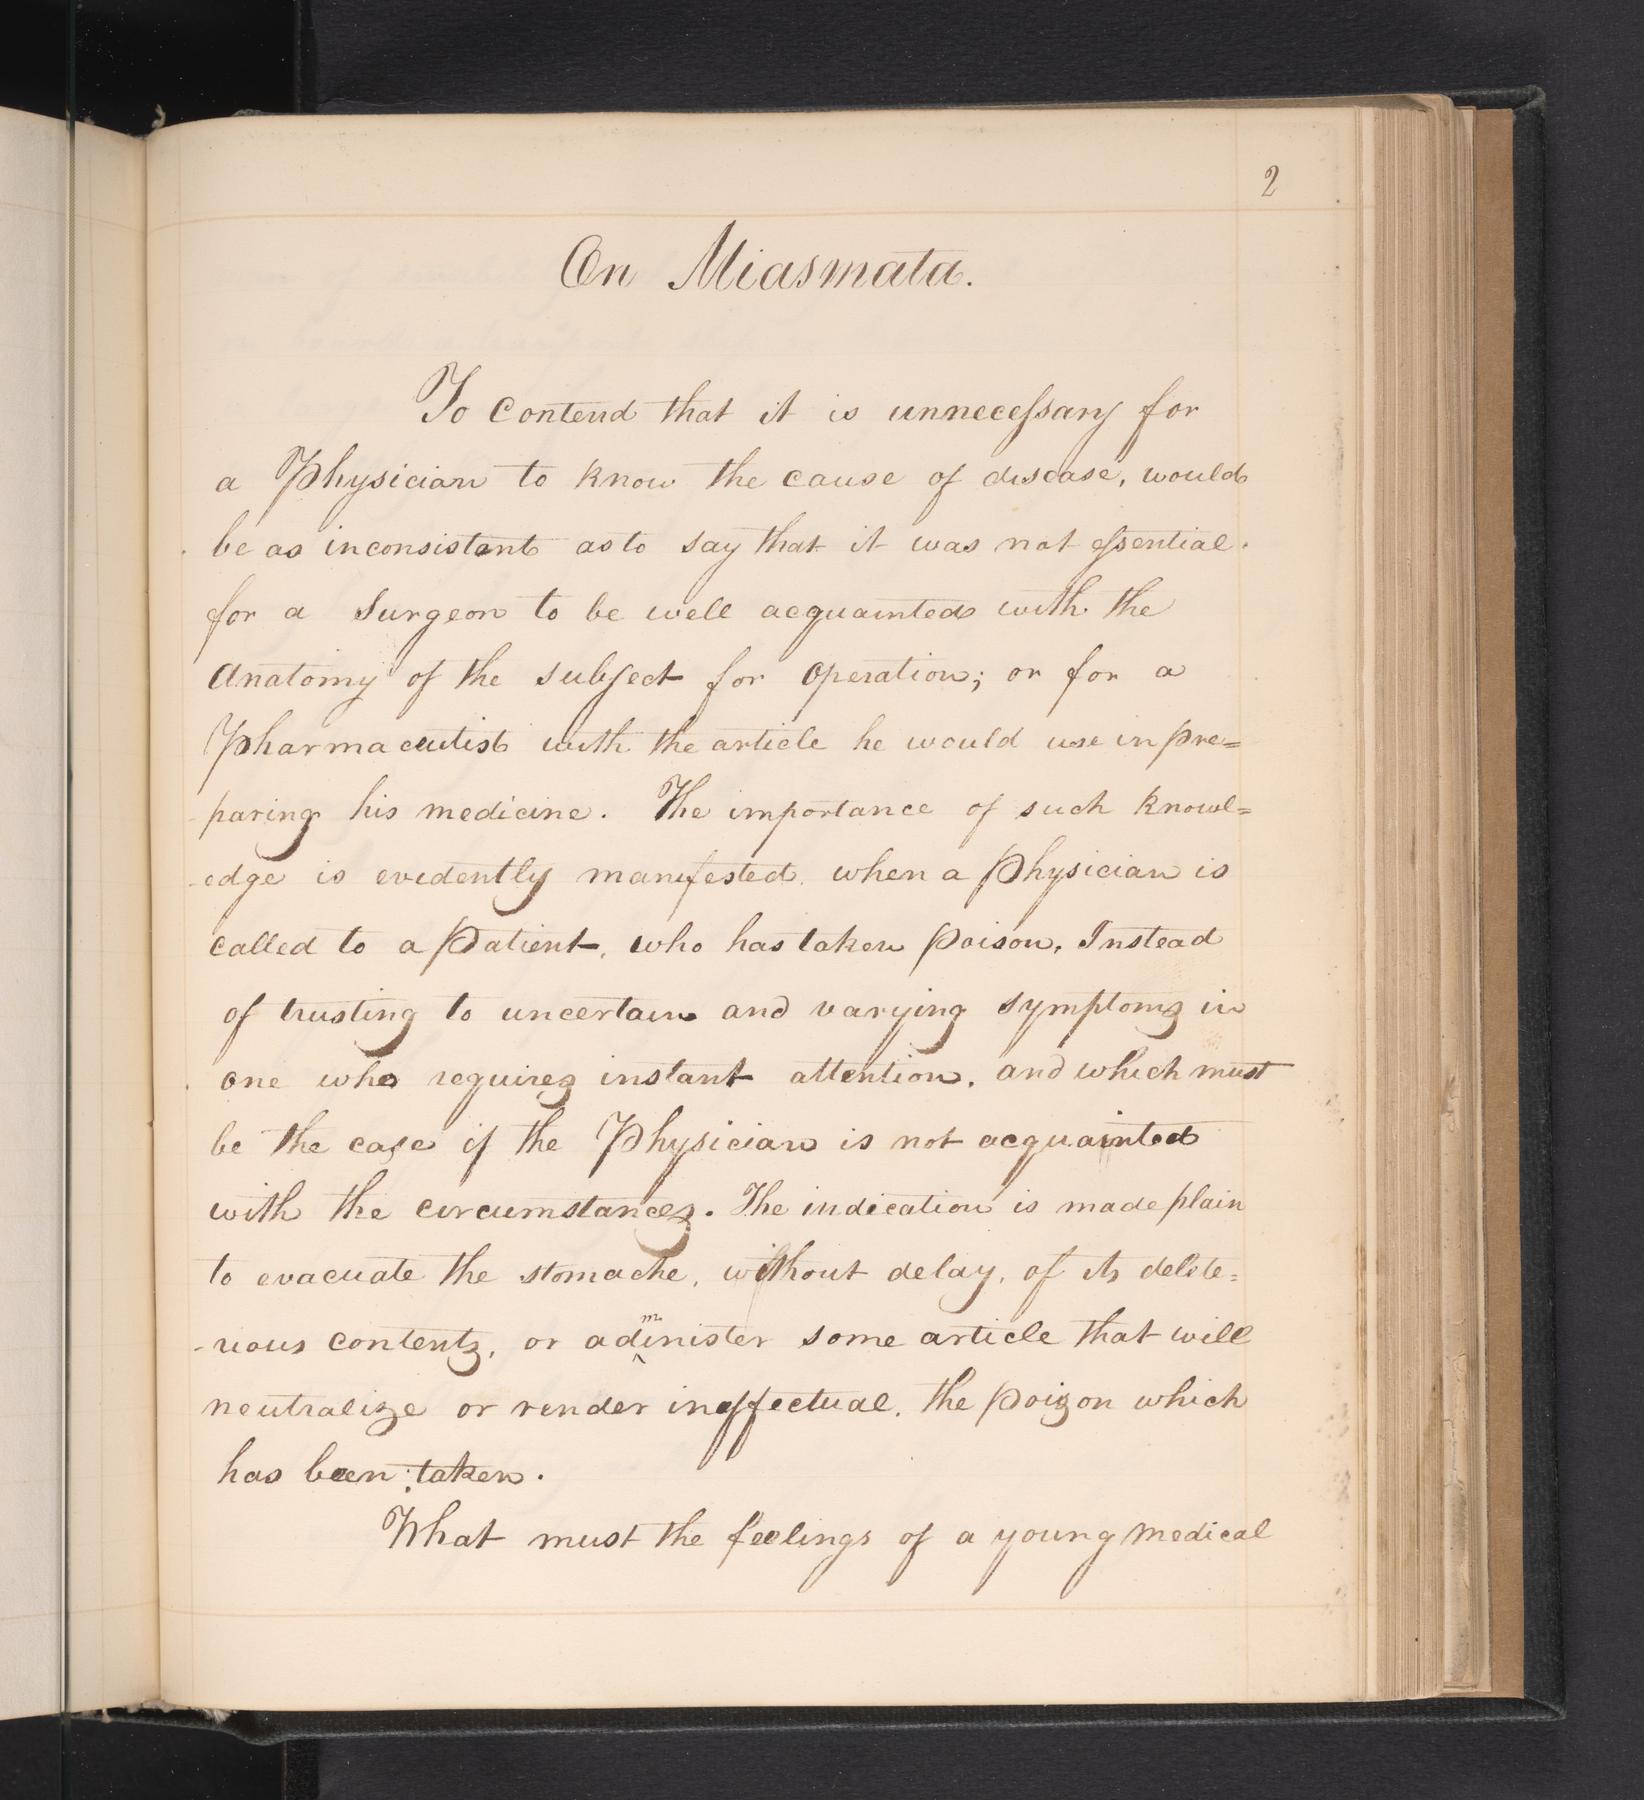 2
On Miasmata.
To contend that it is unnecessary for
a Physician to know the cause of disease, would
be as inconsistant as to say that it was not essential.
for a Surgeon to be well acquainted with the
Anatomy of the subject for operation; or for a
Pharmaceutist with the article he would use in pre=
paring his medicine. The importance of such knowl=
-edge is evidently manifested, when a Physician is
called to a Patient, who has taken Poison, Instead
of trusting to uncertain and varying symptoms in
one who requires instant attention, and which must
be the case if the Physician is not acquainted
with the circumstances. The indication is made plain
to evacuate the stomache, without delay, of its delete=
-rious contents, or administer some article that will
neutralize or render ineffectual, the poison which
has been taken.
What must the feelings of a young medical